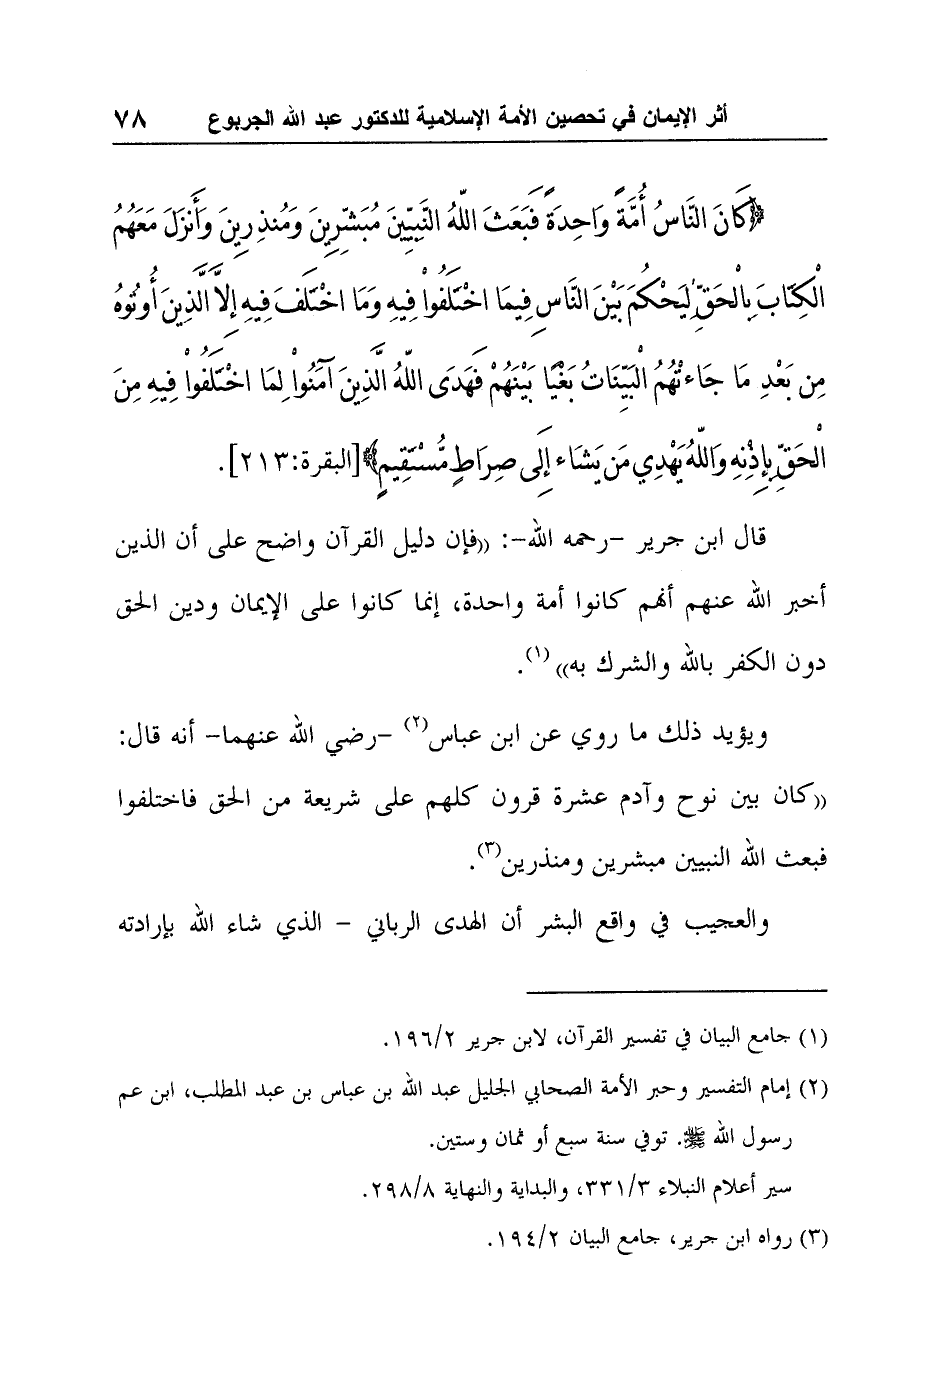 أثر الإيمان في تحصين الأمة الإسلامية للدكتور عبد الله الجربوع ٧٨
﴿كَانَ النَّاسُ أُمَّةً وَاحِدَةً فَبَعَثَ اللَّهُ النَّبِيِّينَ مُبَشِّرِينَ وَمُنذِرِينَ وَأَنزَلَ مَعَهُمُ
الْكِتَابَ بِالْحَقِّ لِيَحْكُمَ بَيْنَ النَّاسِ فِيمَا اخْتَلَفُواْ فِيهِ وَمَا اخْتَلَفَ فِيهِ إِلاَّ الَّذِينَ أُوتُوهُ
مِن بَعْدِ مَا جَاءتْهُمُ الْبَيِّنَاتُ بَغْيًا بَيْنَهُمْ فَهَدَى اللَّهُ الَّذِينَ آمَنُواْ لِمَا اخْتَلَفُواْ فِيهِ مِنَ
الْحَقِّ بِإِذْنِهِ وَاللَّهُ يَهْدِي مَن يَشَاء إِلَى صِرَاطٍ مُّسْتَقِيمٍ﴾[البقرة:٢١٣].
قال ابن جرير -رحمه الله-: ((فإن دليل القرآن واضح على أن الذين
أخبر الله عنهم أنهم كانوا أمة واحدة، إنما كانوا على الإيمان ودين الحق
دون الكفر بالله والشرك به))(١).
ويؤيد ذلك ما روي عن ابن عباس(٢) -رضي الله عنهما- أنه قال:
((كان بين نوح وآدم عشرة قرون كلهم على شريعة من الحق فاختلفوا
فبعث الله النبيين مبشرين ومنذرين(٣).
والعجيب في واقع البشر أن الهدى الرباني - الذي شاء الله بإرادته
(١) جامع البيان في تفسير القرآن، لابن جرير ١٩٦/٢.
(٢) إمام التفسير وحبر الأمة الصحابي الجليل عبد الله بن عباس بن عبد المطلب، ابن عم
رسول الله ﷺ. توفي سنة سبع أو ثمان وستين.
سير أعلام النبلاء ٣٣١/٣، والبداية والنهاية ٢٩٨/٨.
(٣) رواه ابن جرير، جامع البيان ١٩٤/٢.